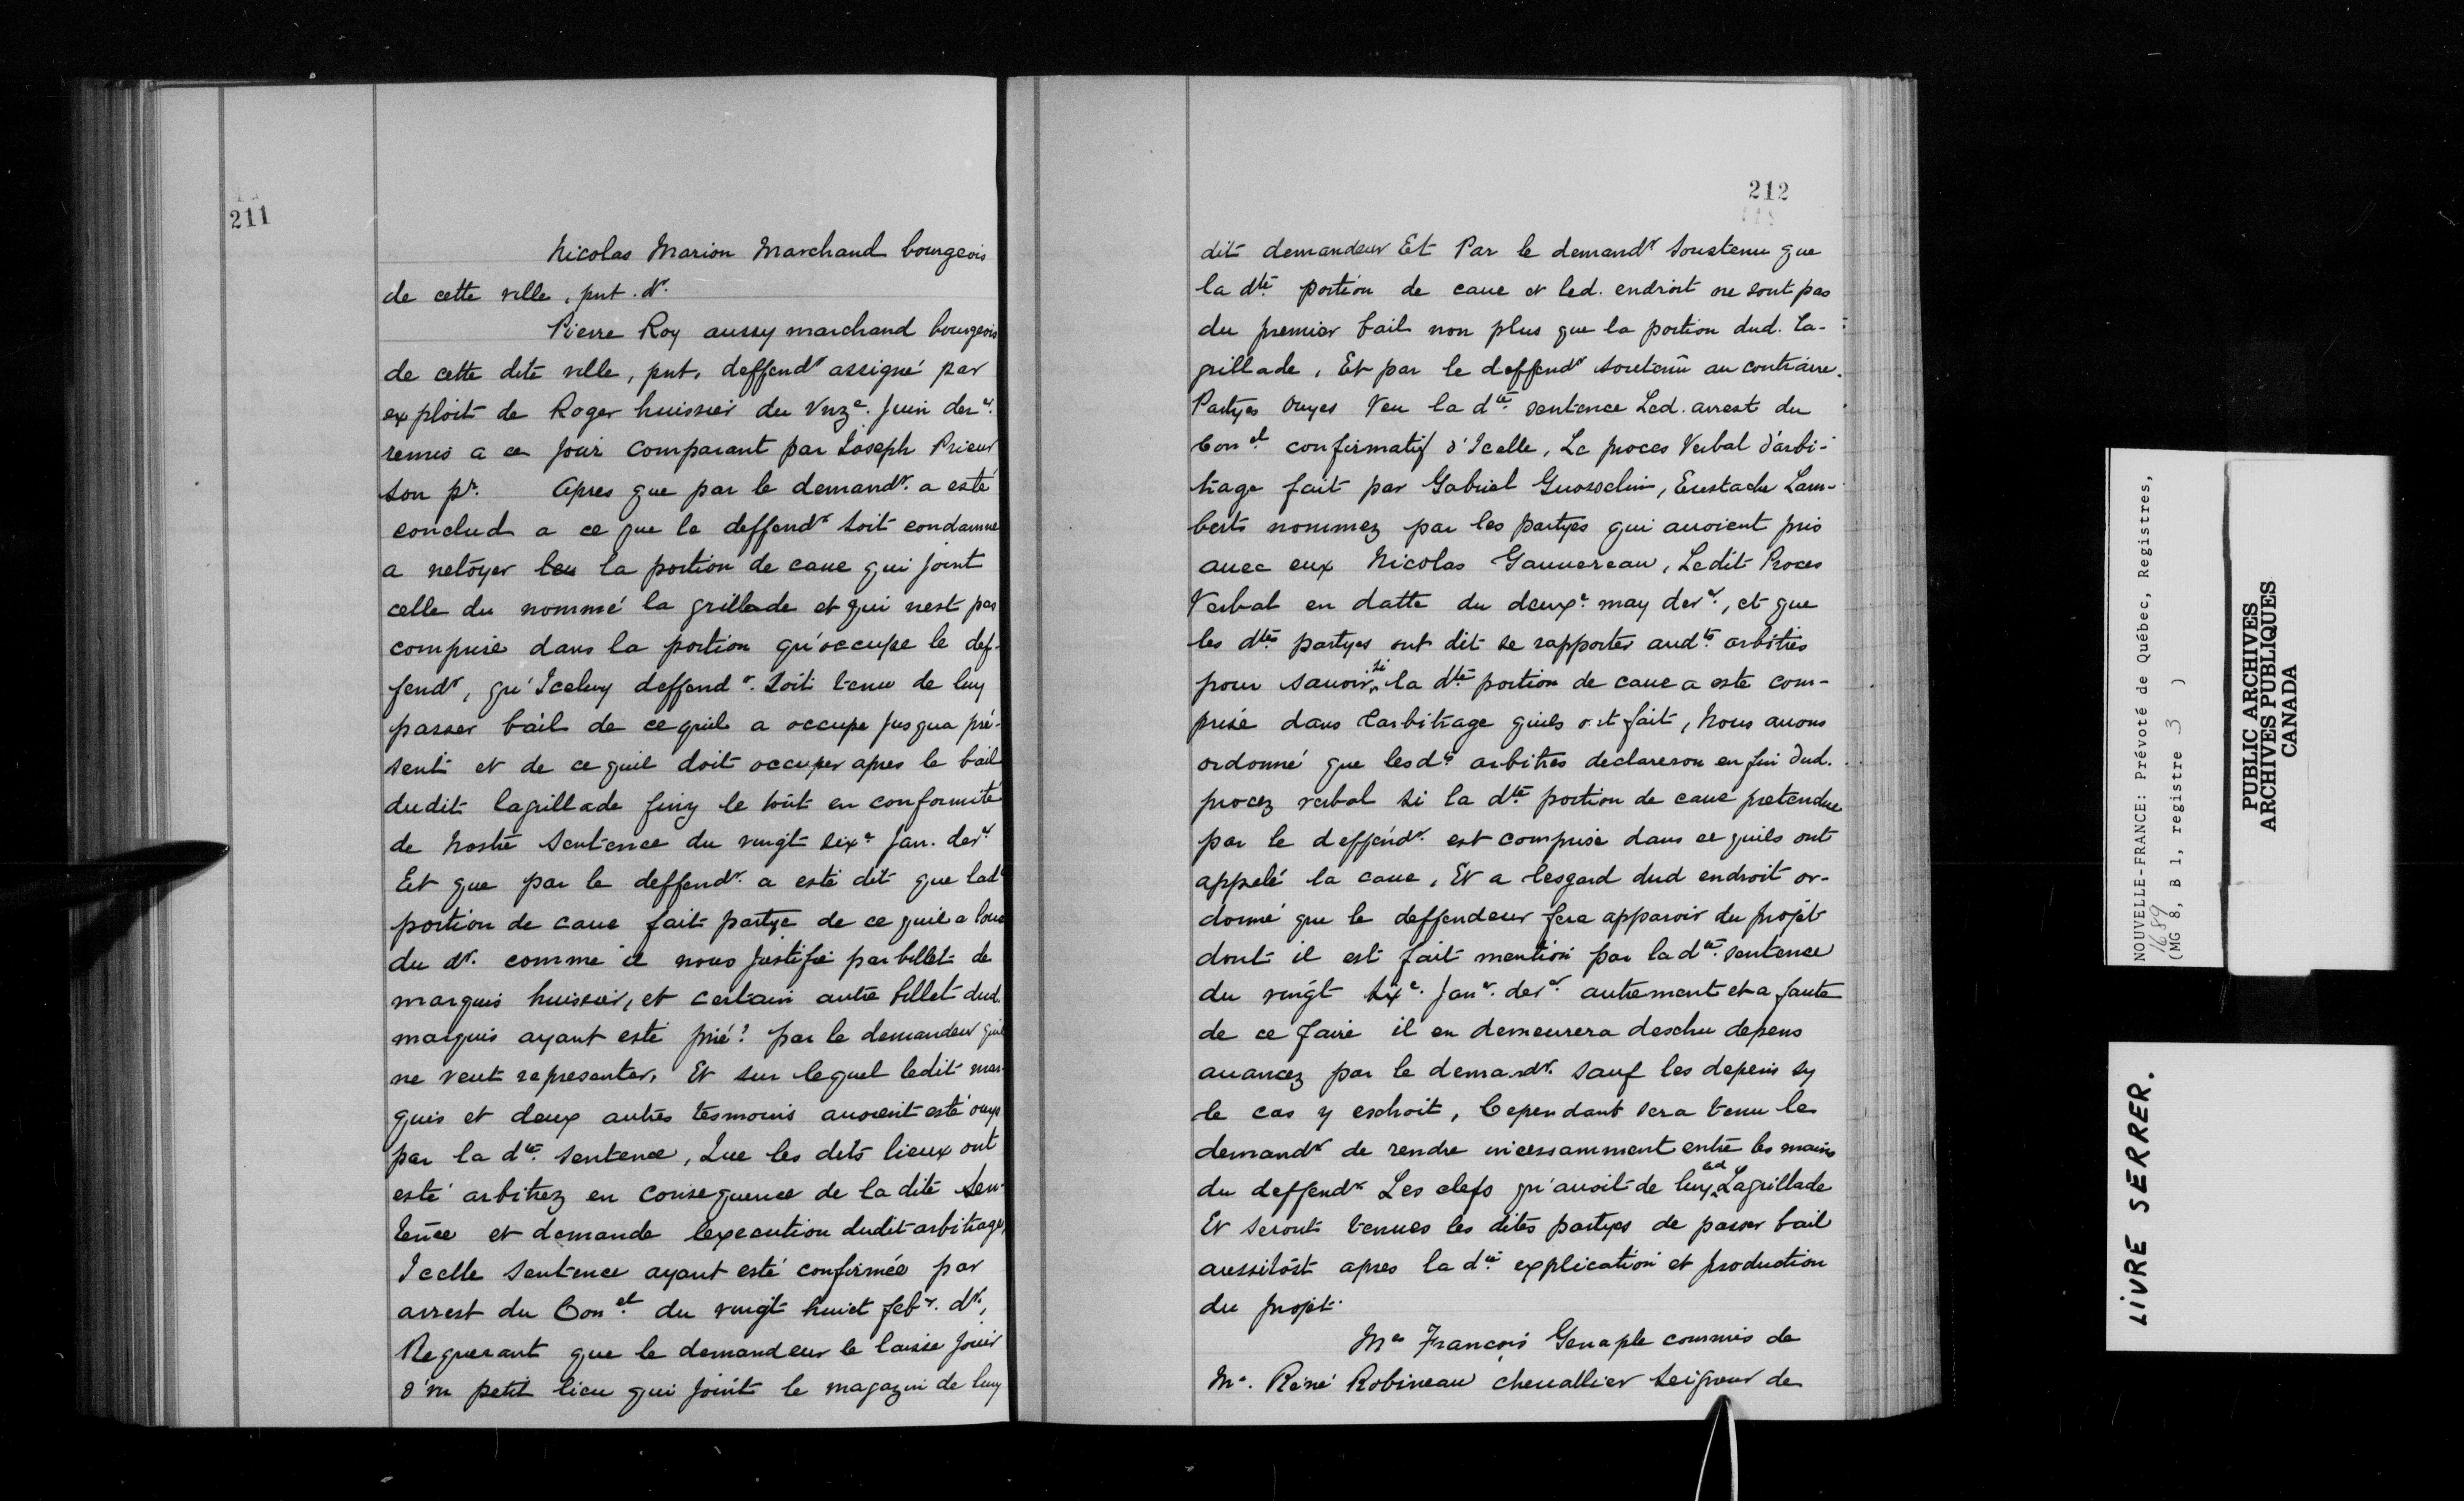 211
Nicolas Marion Marchand bourgeois
de cette ville, pnt. dr.
Pierre Roy aussy marchand bourgeois
de cette dite ville, pnt, deffendr assigné par
exploit de Roger huissier du Vnze. Juin derer.
remis a ce jour comparant par Joseph Prieur
son pr. Apres que par le demandr. a esté
conclud a ce que le deffendr soit condamné
a netoyer leu la portion de caue qui joint
celle du nommé la grillade et qui nest pas
comprise dans la portion qu'occupe le def-
fendr, qu'Iceluy deffendr. soit tenu de luy
passer bail de ce quil a occupé jusqua pré-
sent et de ce quil doit occuper apres le bail
dudit lagrillade finy le tout en conformité
de Nostre Sentence du vingt sixe Jan. derer
Et que par le deffendr. a esté dit que ladte
portion de caue fait partye de ce quil a loué
du dr. comme il nous justifie par billet de
marquis huissier, et certain autre billet dud.
marquis ayant esté prié? par le demandeur quil
ne veut representer, Et sur lequel ledit mar-
quis et deux autres tesmoins auoient esté ouys
par la dte. sentence, Que les dits lieux ont
esté arbitrez en consequence de la dite sen-
tence et demande lexecution dudit arbitrage,
Icelle sentence ayant esté confirmée par
arrest du Conel. du vingt huict febr. dr,
Requerant que le demandeur le laisse jouir
d'vn petit lieu qui joint le magazin de luy
212
dit demandeur Et Par le demandr soustenu que
la dte portion de caue et led. endroit ne sont pas
du premier bail non plus que la portion dud. La-
grillade, Et par le deffendr soutenu au contraire.
Partyes Ouyes Veu la dte sentence Led. arrest du
Conel confirmatif d'Icelle, Le proces Verbal d'arbi-
trage fait par Gabriel Guosselin, Eustache Lam-
berts nommez par les partyes qui auoient pris
auec eux Nicolas Gauuereau, Ledit Proces
Verbal en datte du deuxe. may derer, et que
les dtes partyes ont dit se rapporter audts arbitres
pour sauoir si la dte portion de caue a este com-
prise dans larbitrage quils ont fait, Nous auons
ordonné que lesdts arbitres declareron en fin dud.
procez verbal si la dte portion de caue pretendue
par le deffendr. est comprise dans ce quils ont
appelé la caue, Et a lesgard dud endroit or-
donné que le deffendeur fera apparoir du projet
dont il est fait mention par la dte. sentence
du vingt sixe. Janr. derer autrement et a faute
de ce faire il en demeurera deschu depens
auancez par le demandr. sauf les depens sy
le cas y eschoit, Cependant sera tenu le
demandr de rendre incessamment entre les mains
du deffendr Les clefs qu'auoit de luy led Lagrillade
Et seront tenues les dites partyes de passer bail
aussitost apres la dte explication et production
du projet.
Me François Genaple commis de
Me. Réné Robineau cheuallier seigneur de
NOUVELLE-FRANCE: Prévoté de Québec, Registres,
1689
(MG 8, B 1, registre 3 )
PUBLIC ARCHIVES
ARCHIVES PUBLIQUES
CANADA
LIVRE SERRER.